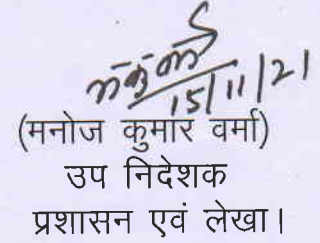 15/11/21
(मनोज कुमार वर्मा)
उप निदेशक
प्रशासन एवं लेखा।